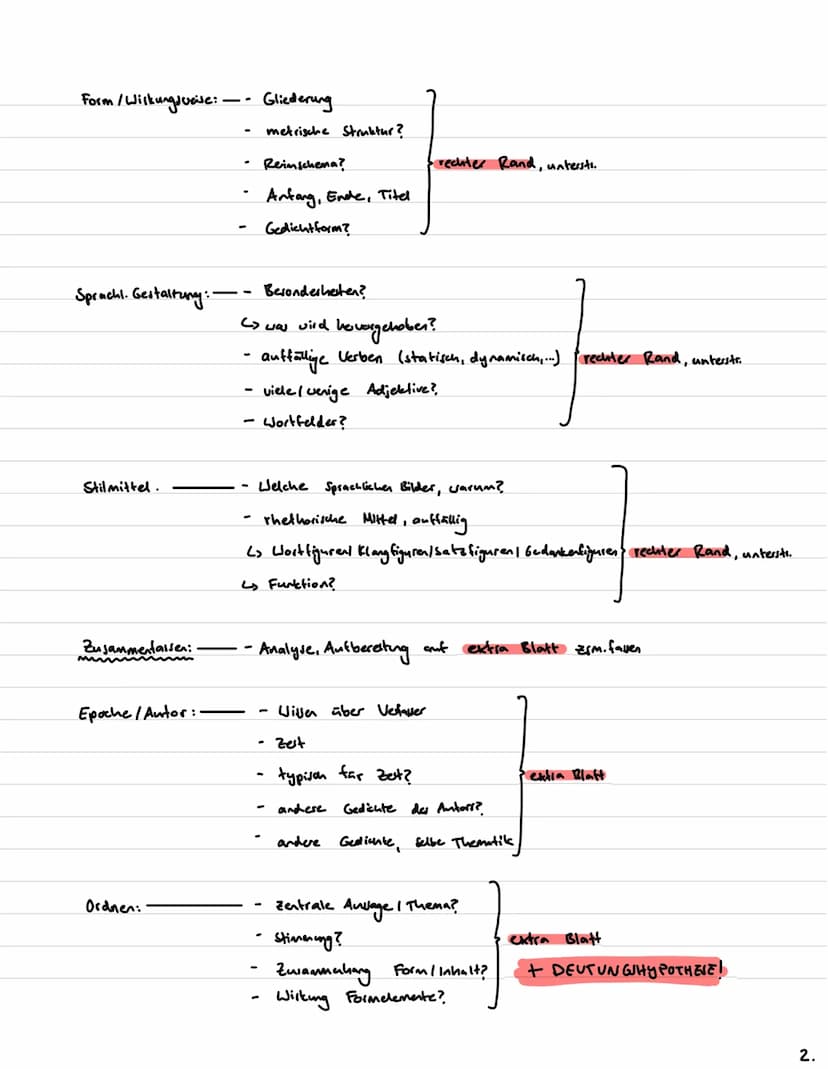 Form / Wirkungsweise: — - Gliederung
- metrische Struktur?
- Reimschema?
rechter Rand, unterstr.
- Anfang, Ende, Titel
- Gedichtform?
Sprachl. Gestaltung: — - Besonderheiten?
↳ was wird hervorgehoben?
- auffällige Verben (statisch, dynamisch,...) rechter Rand, unterstr.
- viele / wenige Adjektive?
- Wortfelder?
Stilmittel. — - Welche sprachlichen Bilder, warum?
- rhethorische Mittel, auffällig
↳ Wortfiguren / Klangfiguren / Satzfiguren / Gedankenfiguren rechter Rand, unterstr.
↳ Funktion?
Zusammenfassen: — - Analyse, Aufbereitung auf extra Blatt zsm. fassen
Epoche / Autor: — - Wissen über Verfasser
- Zeit
- typisch für Zeit? extra Blatt
- andere Gedichte des Autors?
- andere Gedichte, selbe Thematik
Ordnen: — - zentrale Aussage / Thema?
- Stimmung? extra Blatt
- Zusammenhang Form / Inhalt? + DEUTUNGSHYPOTHESE!
- Wirkung Formelemente?
2.